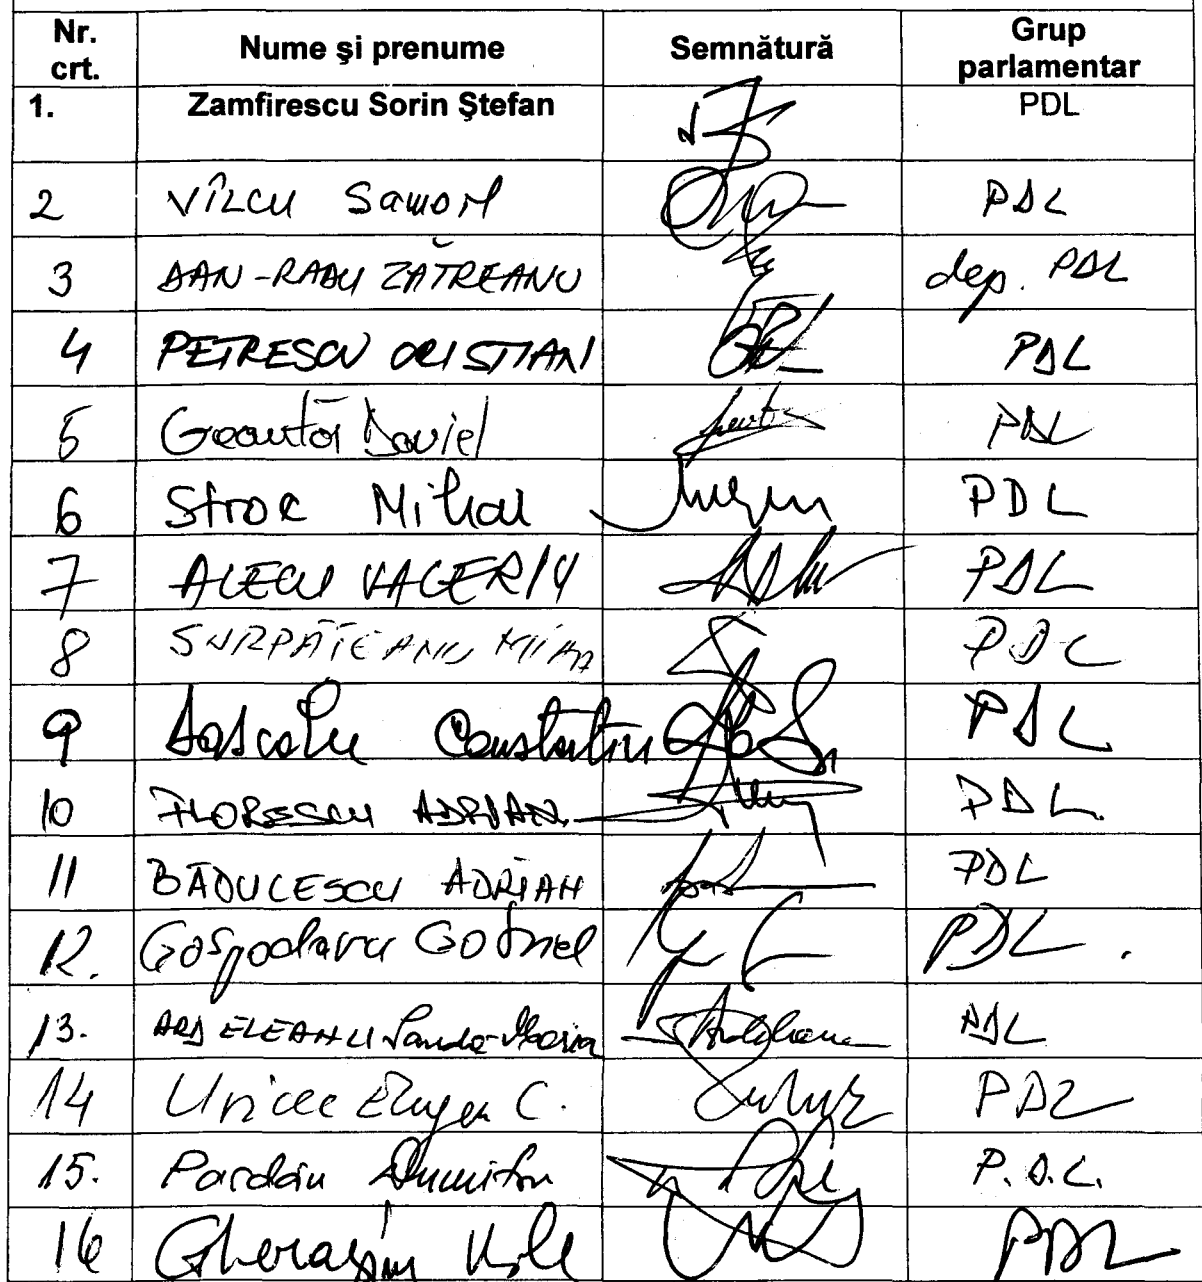 Nr. crt. Nume și prenume Semnătură Grup parlamentar
1. Zamfirescu Sorin Ștefan PDL
2 VÎLCU Samoil PDL
3 DAN-RADU ZĂTREANU dep. PDL
4 PETRESCU CRISTIAN PDL
5 Geantă Daniel PDL
6 Stroe Mihai PDL
7 ALECU VALERIU PDL
8 SURPĂȚEANU PDL
9 Dascălu Constantin PDL
10 FLORESCU ADRIAN PDL.
11 BĂDULESCU ADRIAN PDL
12. Gospodaru Gabriel PDL.
13. ARDELEANU Sanda-Maria PDL
14 Uricec Eugen C. PDL
15. Pardău Dumitru P.D.L.
16 Gherasim PDL